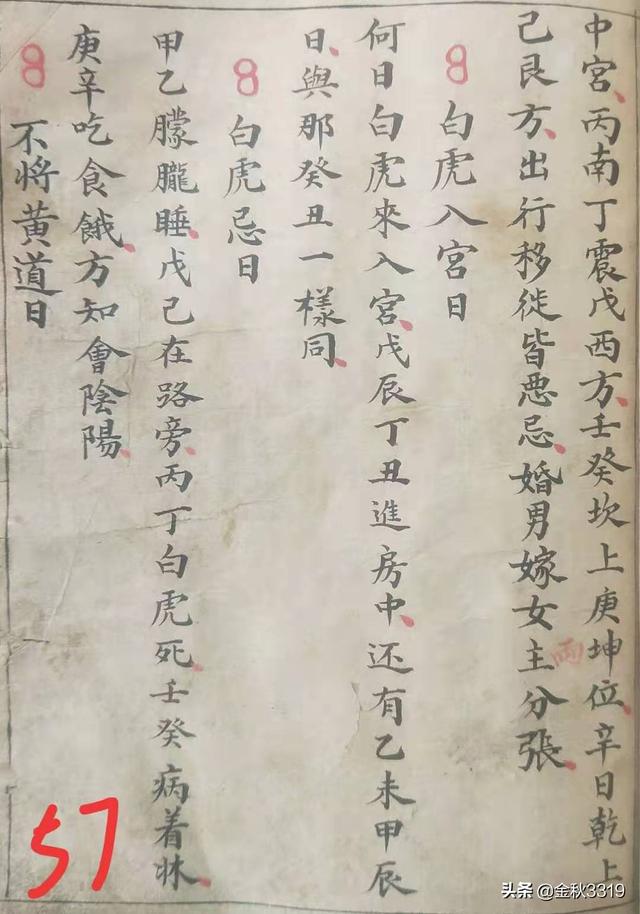 中宮、丙南丁震戊西方、壬癸坎上庚坤位、辛日乾上
己艮方、出行移徙皆惡忌、婚男嫁女主分張、
兩
8 白虎入宮日
何日白虎來入宮、戊辰丁丑進房中、还有乙未甲辰
日、與那癸丑一樣同、
8 白虎忌日
甲乙朦朧睡、戊己在路旁、丙丁白虎死、壬癸病着牀、
庚辛吃食餓、方知會陰陽、
8 不將黃道日
57
头条 @金秋3319